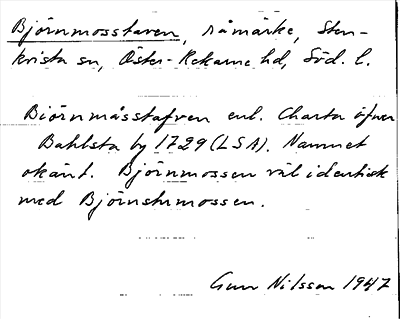 Björnmosstaven, råmärke, Sten-
krista sn, Öster-Rekarne hd, Söd. l.
Biörnmåsstafven enl. Charta öfver
Bahlsta by 1729 (LSA). Namnet
okänt. Björnmossen väl identisk
med Björnstumossen.
Gun Nilsson 1947